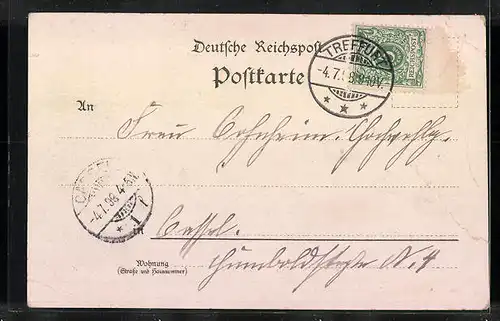 Deutsche Reichspost
Postkarte
TREFFURT
-4.7.98. 9-10V.
* * *
REICHSPOST
An
Frau
CASSEL
-4.7.98 4-5N.
* 1
in Cassel.
Humboldstraße N. 4
Wohnung
(Straße und Hausnummer)